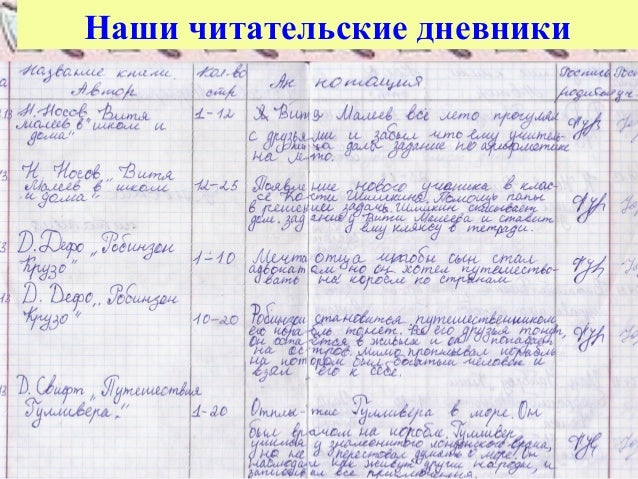 Наши читательские дневники
Название книги. Кол-во Ан нотация Роспись
Автор стр родителей уч.
Н. Носов, Витя 1-12 Витя Малеев всё лето прогулял
Малеев в школе и с друзьями и забыл что ему учитель-
дома" дала задание по арифметике
на лето.
Н. Носов „Витя 12-25 Появление нового ученика в клас-
Малеев в школе се Кости Шишкина. Помощь папы
и дома" в решении задач. Шишкин списывает
дом. задание у Вити Малеева и ставит
ему кляксу в тетради.
Д. Дефо „Робинзон 1-10 Мечта отца чтобы сын стал
Крузо" адвокатом но он хотел путешество-
вать на корабле по странам
Д. Дефо „Робинзон
Крузо" 10-20 Робинзон становится путешественником
его корабль тонет. его друзья тонут,
он остаётся в живых и он попадает
на остров. Мимо проплывал корабль
на котором был богатый человек и
взял его к себе.
Д. Свифт „Путешествия
Гулливера." 1-20 Отплытие Гулливера в море. Он
был врачом на корабле. Гулливер
учился у знаменитого лондонского врача,
но не перестовал думать о море. Он
наблюдал как живут други народы, и
записывал все приключения.